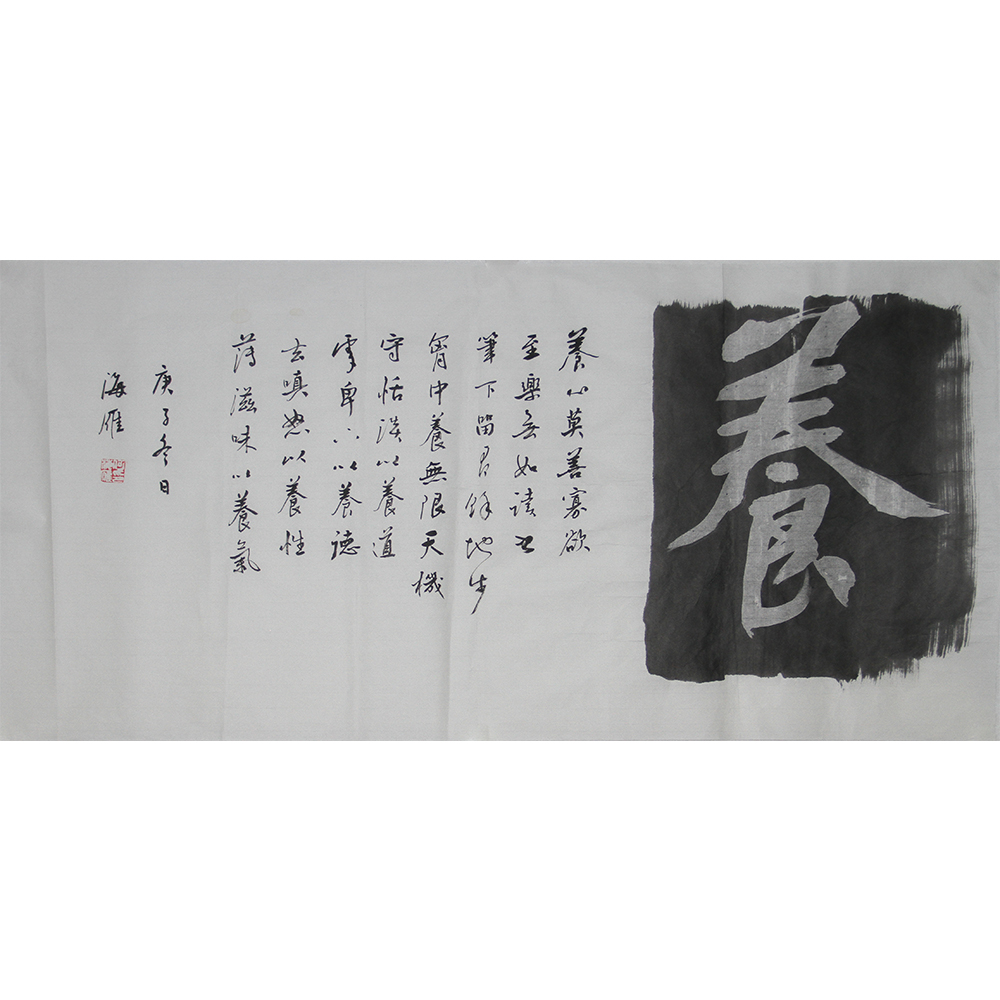 養
養心莫善寡欲
至樂無如讀書
筆下留有餘地步
胸中養無限天機
守恬淡以養道
處卑下以養德
去嗔怒以養性
薄滋味以養氣
庚子冬日
海雁